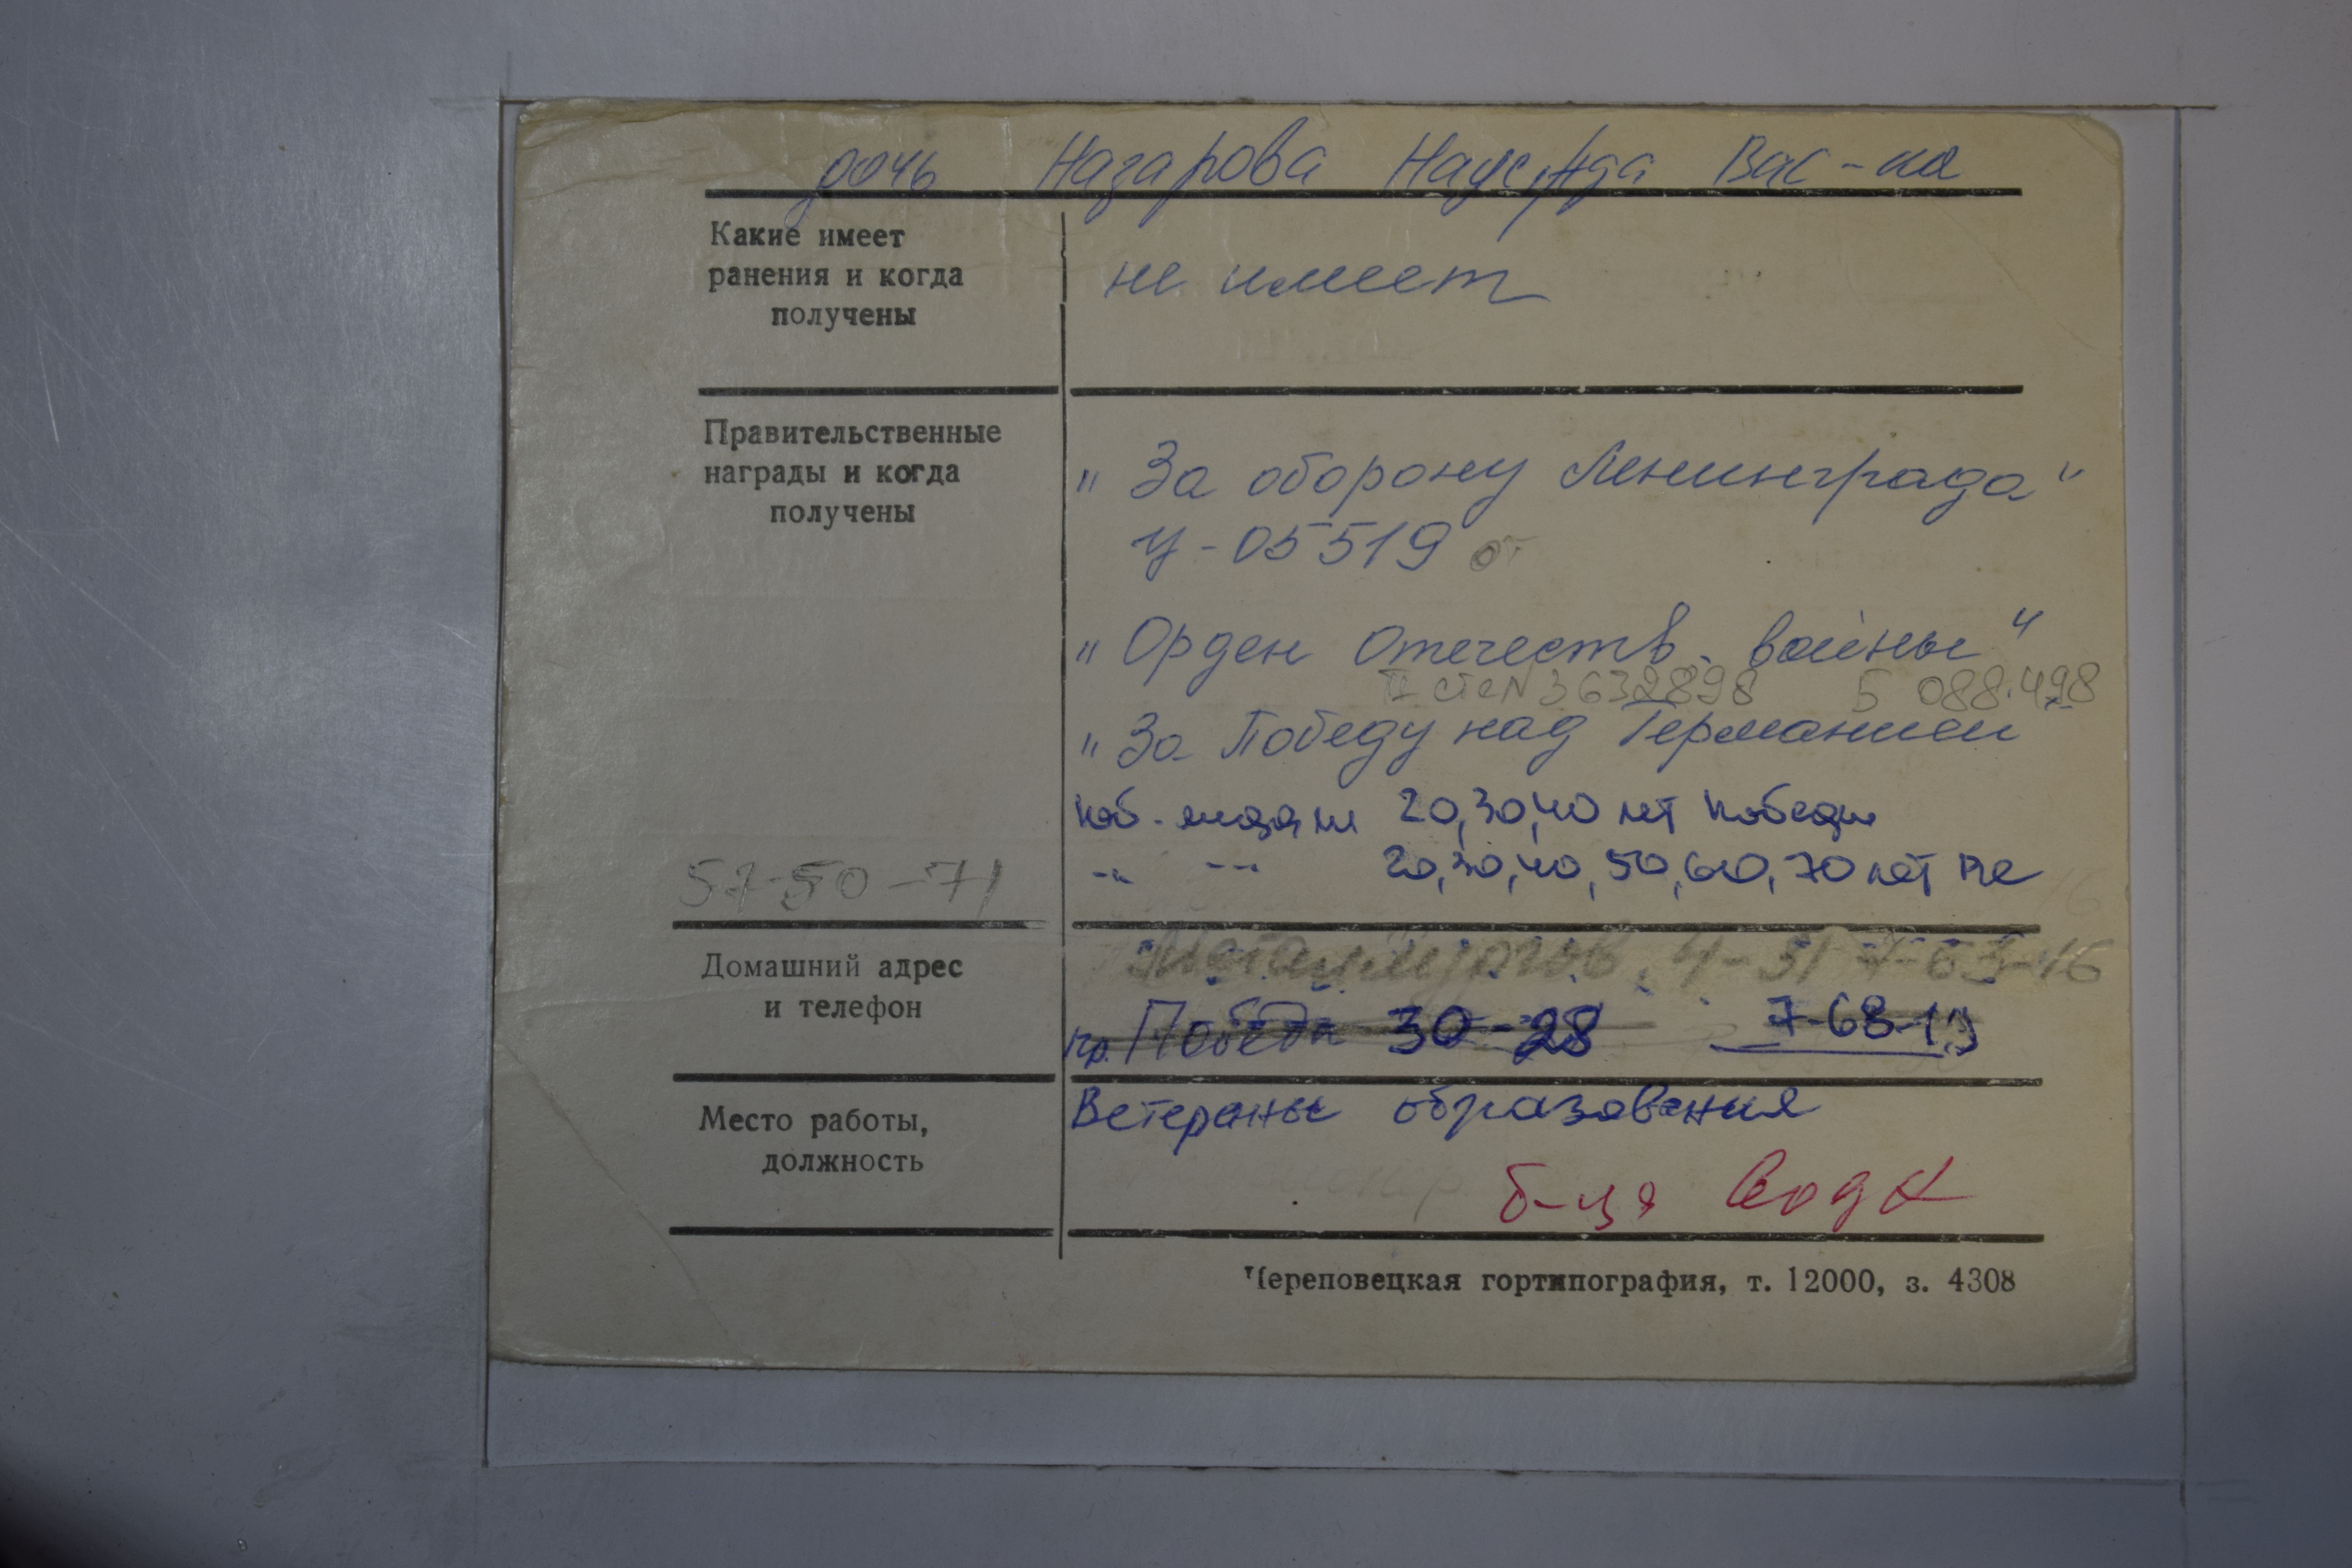 дочь Назарова Надежда Вас-на
Какие имеет
ранения и когда
получены
не имеет
Правительственные
награды и когда
получены
" За оборону Ленинграда "
У-05519 от
" Орден Отечеств. войны "
II ст. № 3632898 Б 088.498
" За Победу над Германией
юб. медали 20,30,40 лет Победы
-"- -"- 20,30,40,50,60,70 лет
57-50-71
Домашний адрес
и телефон
Металлургов, 4-31 7-63-16
пр. Победы 30-28 7-68-13
Место работы,
должность
Ветераны образования
б-ца
Череповецкая гортипография, т. 12000, з. 4308